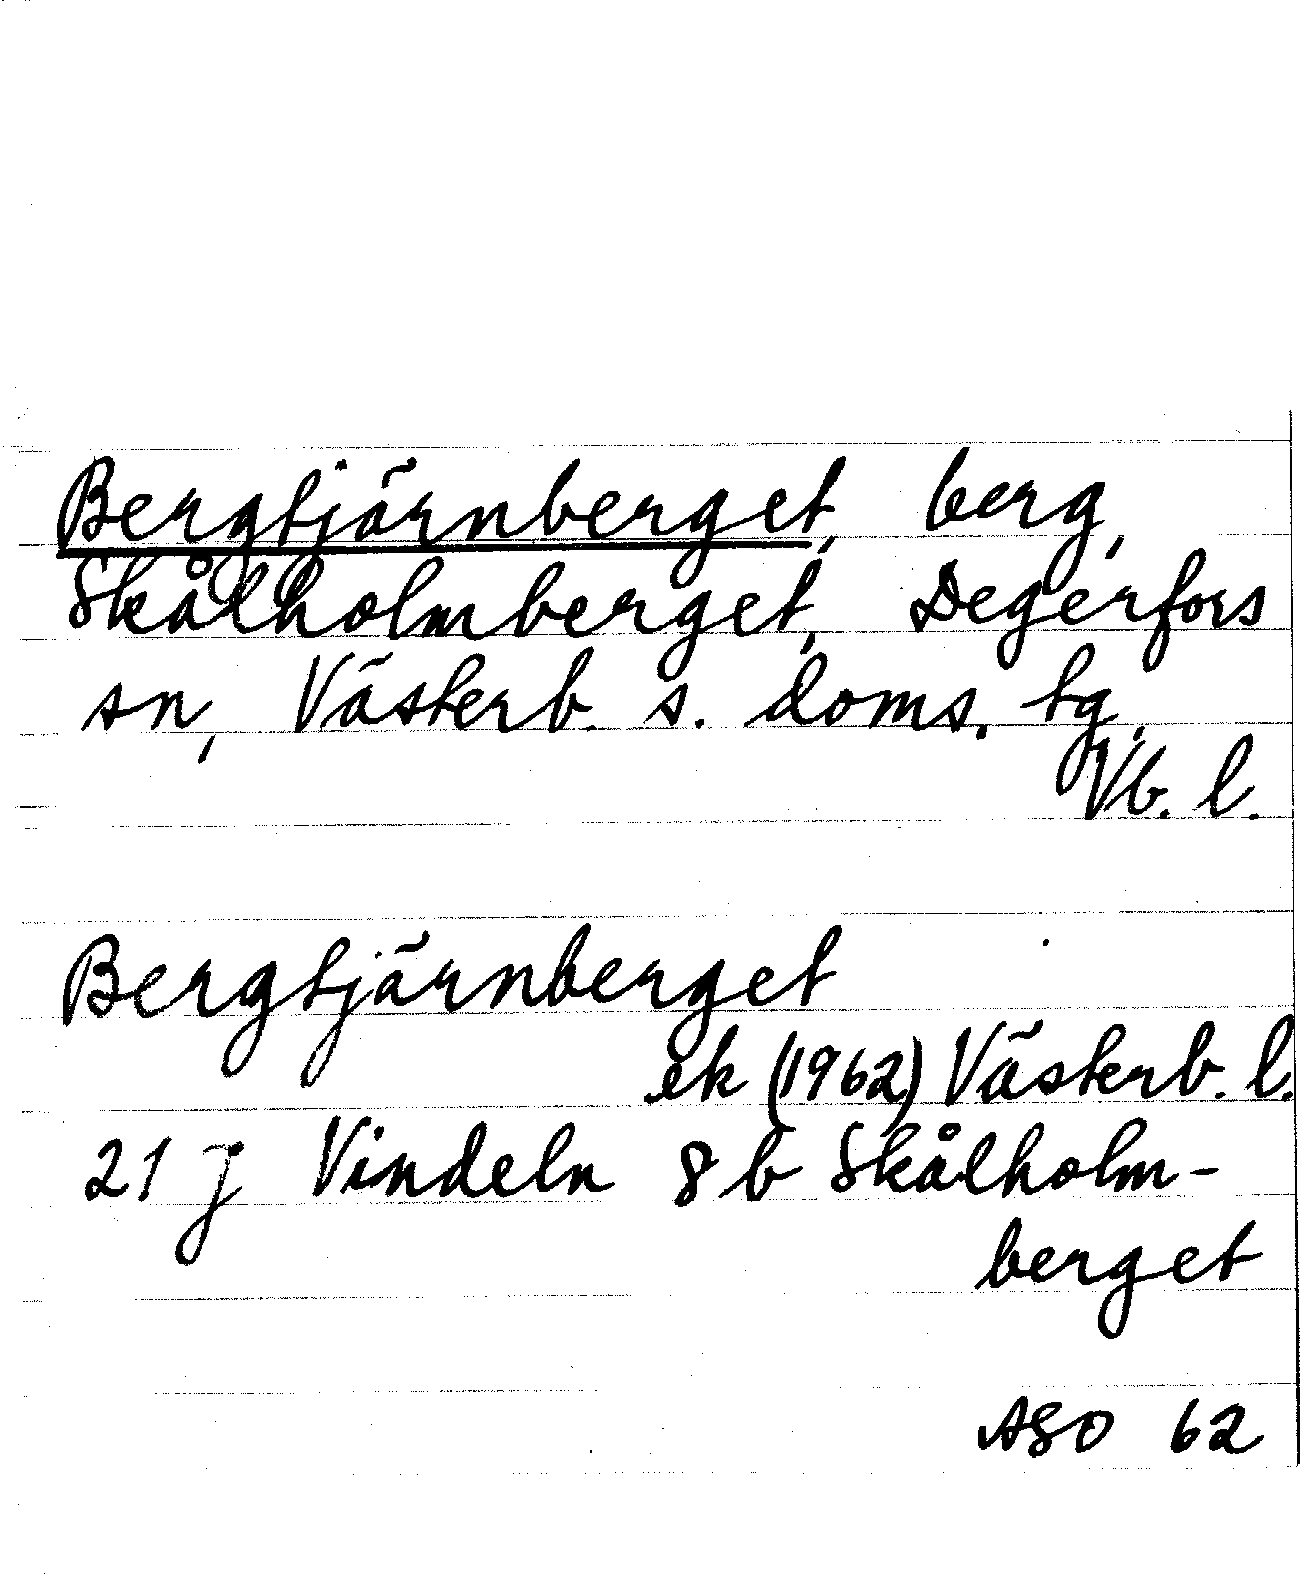 Bergtjärnberget, berg,
Skålholmberget, Degerfors
sn, Västerb. s. doms. tg.
Vb. l.
Bergtjärnberget
ek (1962) Västerb. l.
21 J Vindeln 8 b Skålholm-
berget
ASO 62